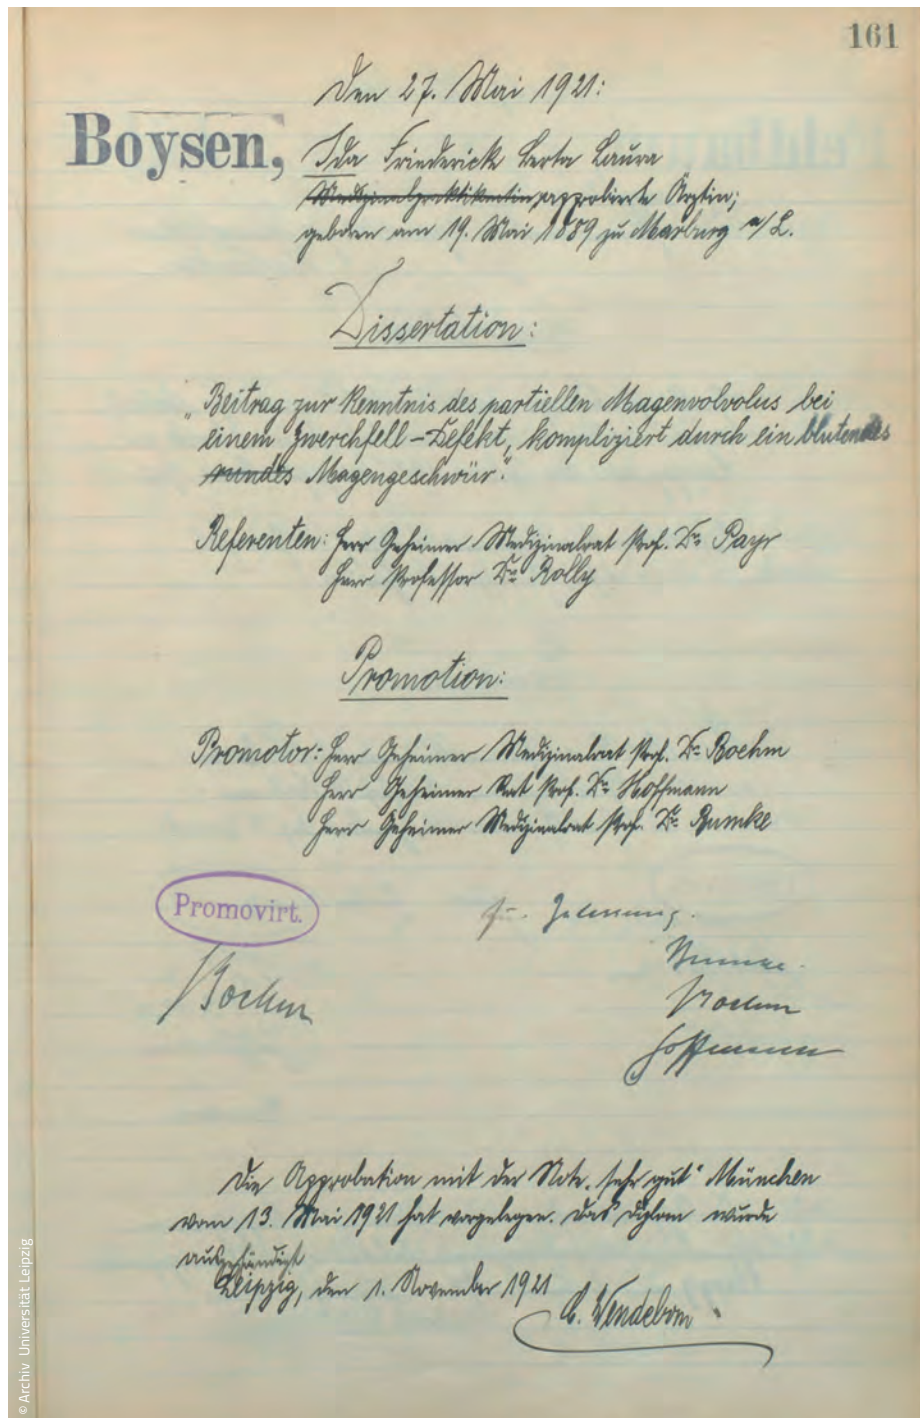 161
Den 27. Mai 1921:
Boysen, Ida Friederick Berta Laura
Medizinalpraktikantin approbierte Ärztin;
geboren am 19. Mai 1889 zu Marburg a/L.
Dissertation:
„Beitrag zur Kenntnis des partiellen Magenvolvolus bei
einem Zwerchfell-Defekt, kompliziert durch ein blutendes
rundes Magengeschwür."
Referenten: Herr Geheimer Medizinalrat Prof. Dr. Payr
Herr Professor Dr. Rolly
Promotion:
Promotor: Herr Geheimer Medizinalrat Prof. Dr. Boehm
Herr Geheimer Rat Prof. Dr. Hoffmann
Herr Geheimer Medizinalrat Prof. Dr. Bumke
Promovirt.
Boehm
Bumke.
Boehm
Hoffmann
Die Approbation mit der Note „sehr gut" München
vom 13. Mai 1921 hat vorgelegen. Das Diplom wurde
ausgehändigt
Leipzig, den 1. November 1921
C. Wendeborn
© Archiv Universität Leipzig